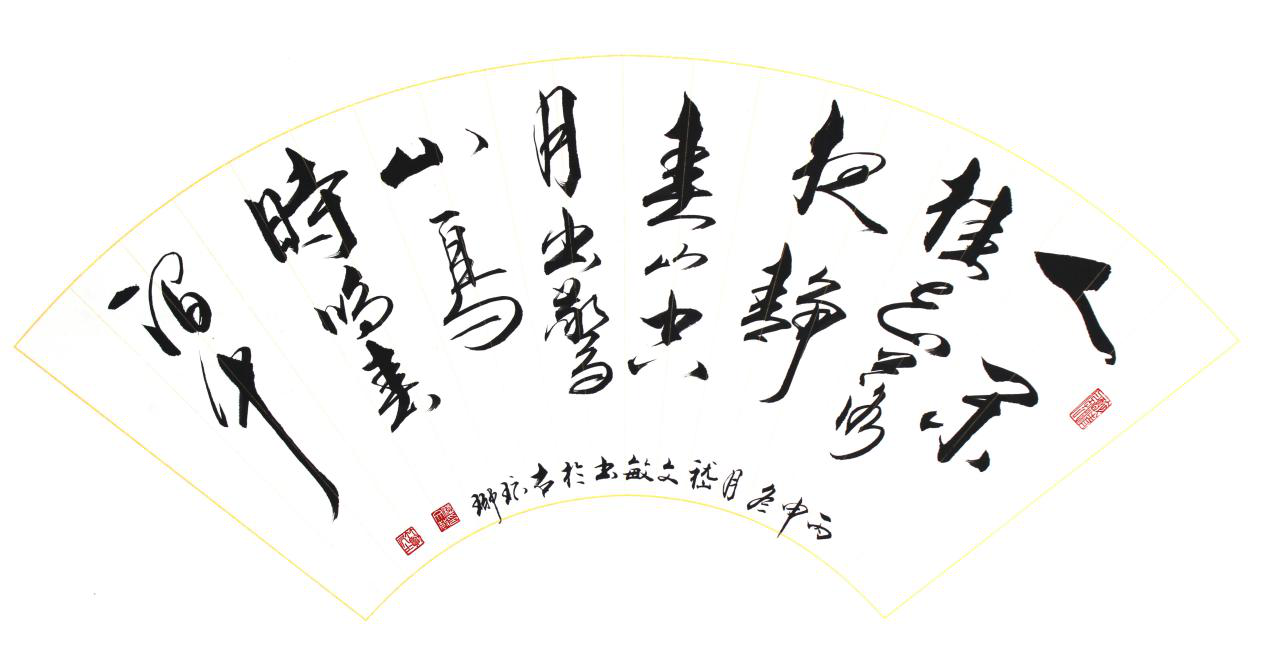 人閒
桂花落
夜靜
春山空
月出驚
山鳥
時鳴春
澗中
丙申冬月嵇文敏書於古琅琊